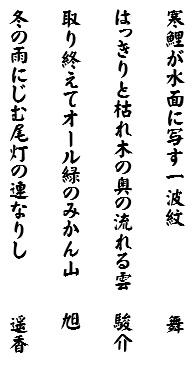 寒鯉が水面に写す一波紋　舞
はっきりと枯れ木の奥の流れる雲　駿介
取り終えてオール緑のみかん山　旭
冬の雨にじむ尾灯の連なりし　遥香